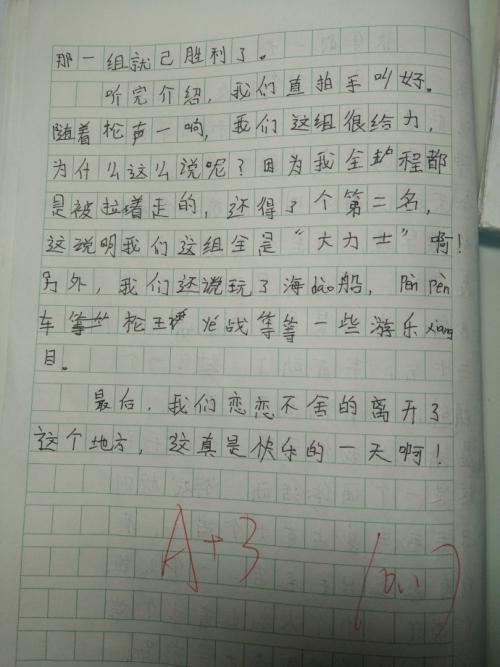 那一组就己胜利了。
听完介绍，我们直拍手叫好。
随着枪声一响，我们这组很给力，
为什么这么说呢？因为我全 程都
是被拉着走的，还得了个第二名，
这说明我们这组全是“大力士”啊！
另外，我们还 玩了海dào船，pèn pèn
车 枪王 战等等一些游乐xiàng
目。
最后，我们恋恋不舍的离开了
这个地方，这真是快乐的一天啊！
A+3